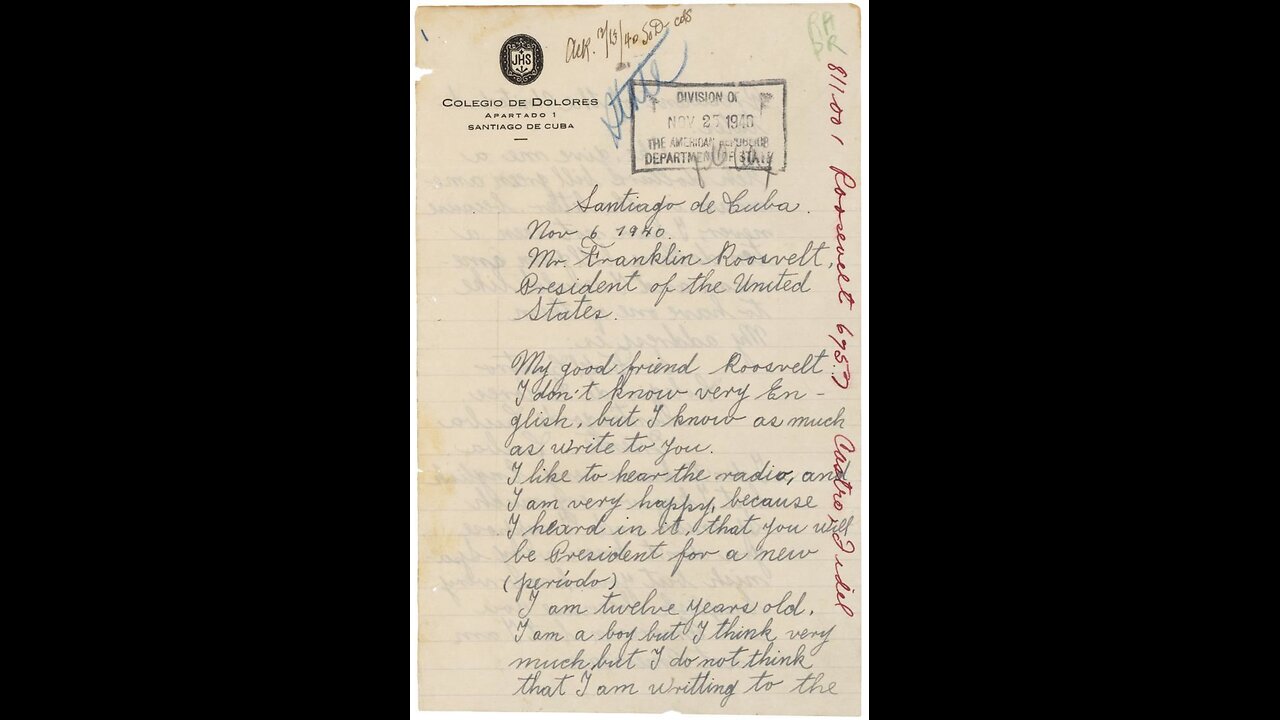 JHS
COLEGIO DE DOLORES
APARTADO 1
SANTIAGO DE CUBA
State
DIVISION OF
NOV 25 1940
THE AMERICAN REPUBLICS
DEPARTMENT OF STATE
Santiago de Cuba.
Nov 6 1940.
Mr. Franklin Roosvelt,
President of the United
States.
My good friend Roosvelt
I don't know very En-
glish, but I know as much
as write to you.
I like to hear the radio, and
I am very happy, because
I heard in it, that you will
be President for a new
(período)
I am twelve years old.
I am a boy but I think very
much, but I do not think
that I am writting to the
811.001 Roosevelt
Castro, Fidel